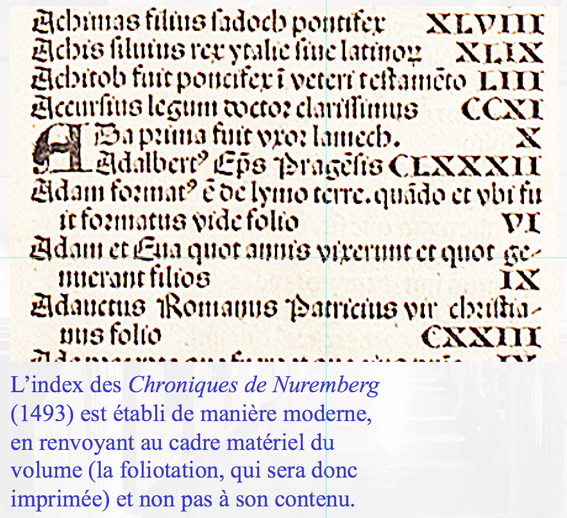 Achimas filius sadoch pontifex XLVIII
Achis siluius rex ytalie siue latinoꝝ XLIX
Achitob fuit pontifex ī veteri testamēto LIII
Accursius legum doctor clarissimus CCXI
ADa prima fuit vxor lamech. X
Adalbertꝰ Ep̄s Pragēsis CLXXXII
Adam formatꝰ ē de lymo terre. quādo et vbi fu
it formatus vide folio VI
Adam et Eua quot annis vixerunt et quot ge-
nuerant filios IX
Adauctus Romanus Patricius vir christia-
nus folio CXXIII
L’index des Chroniques de Nuremberg
(1493) est établi de manière moderne,
en renvoyant au cadre matériel du
volume (la foliotation, qui sera donc
imprimée) et non pas à son contenu.